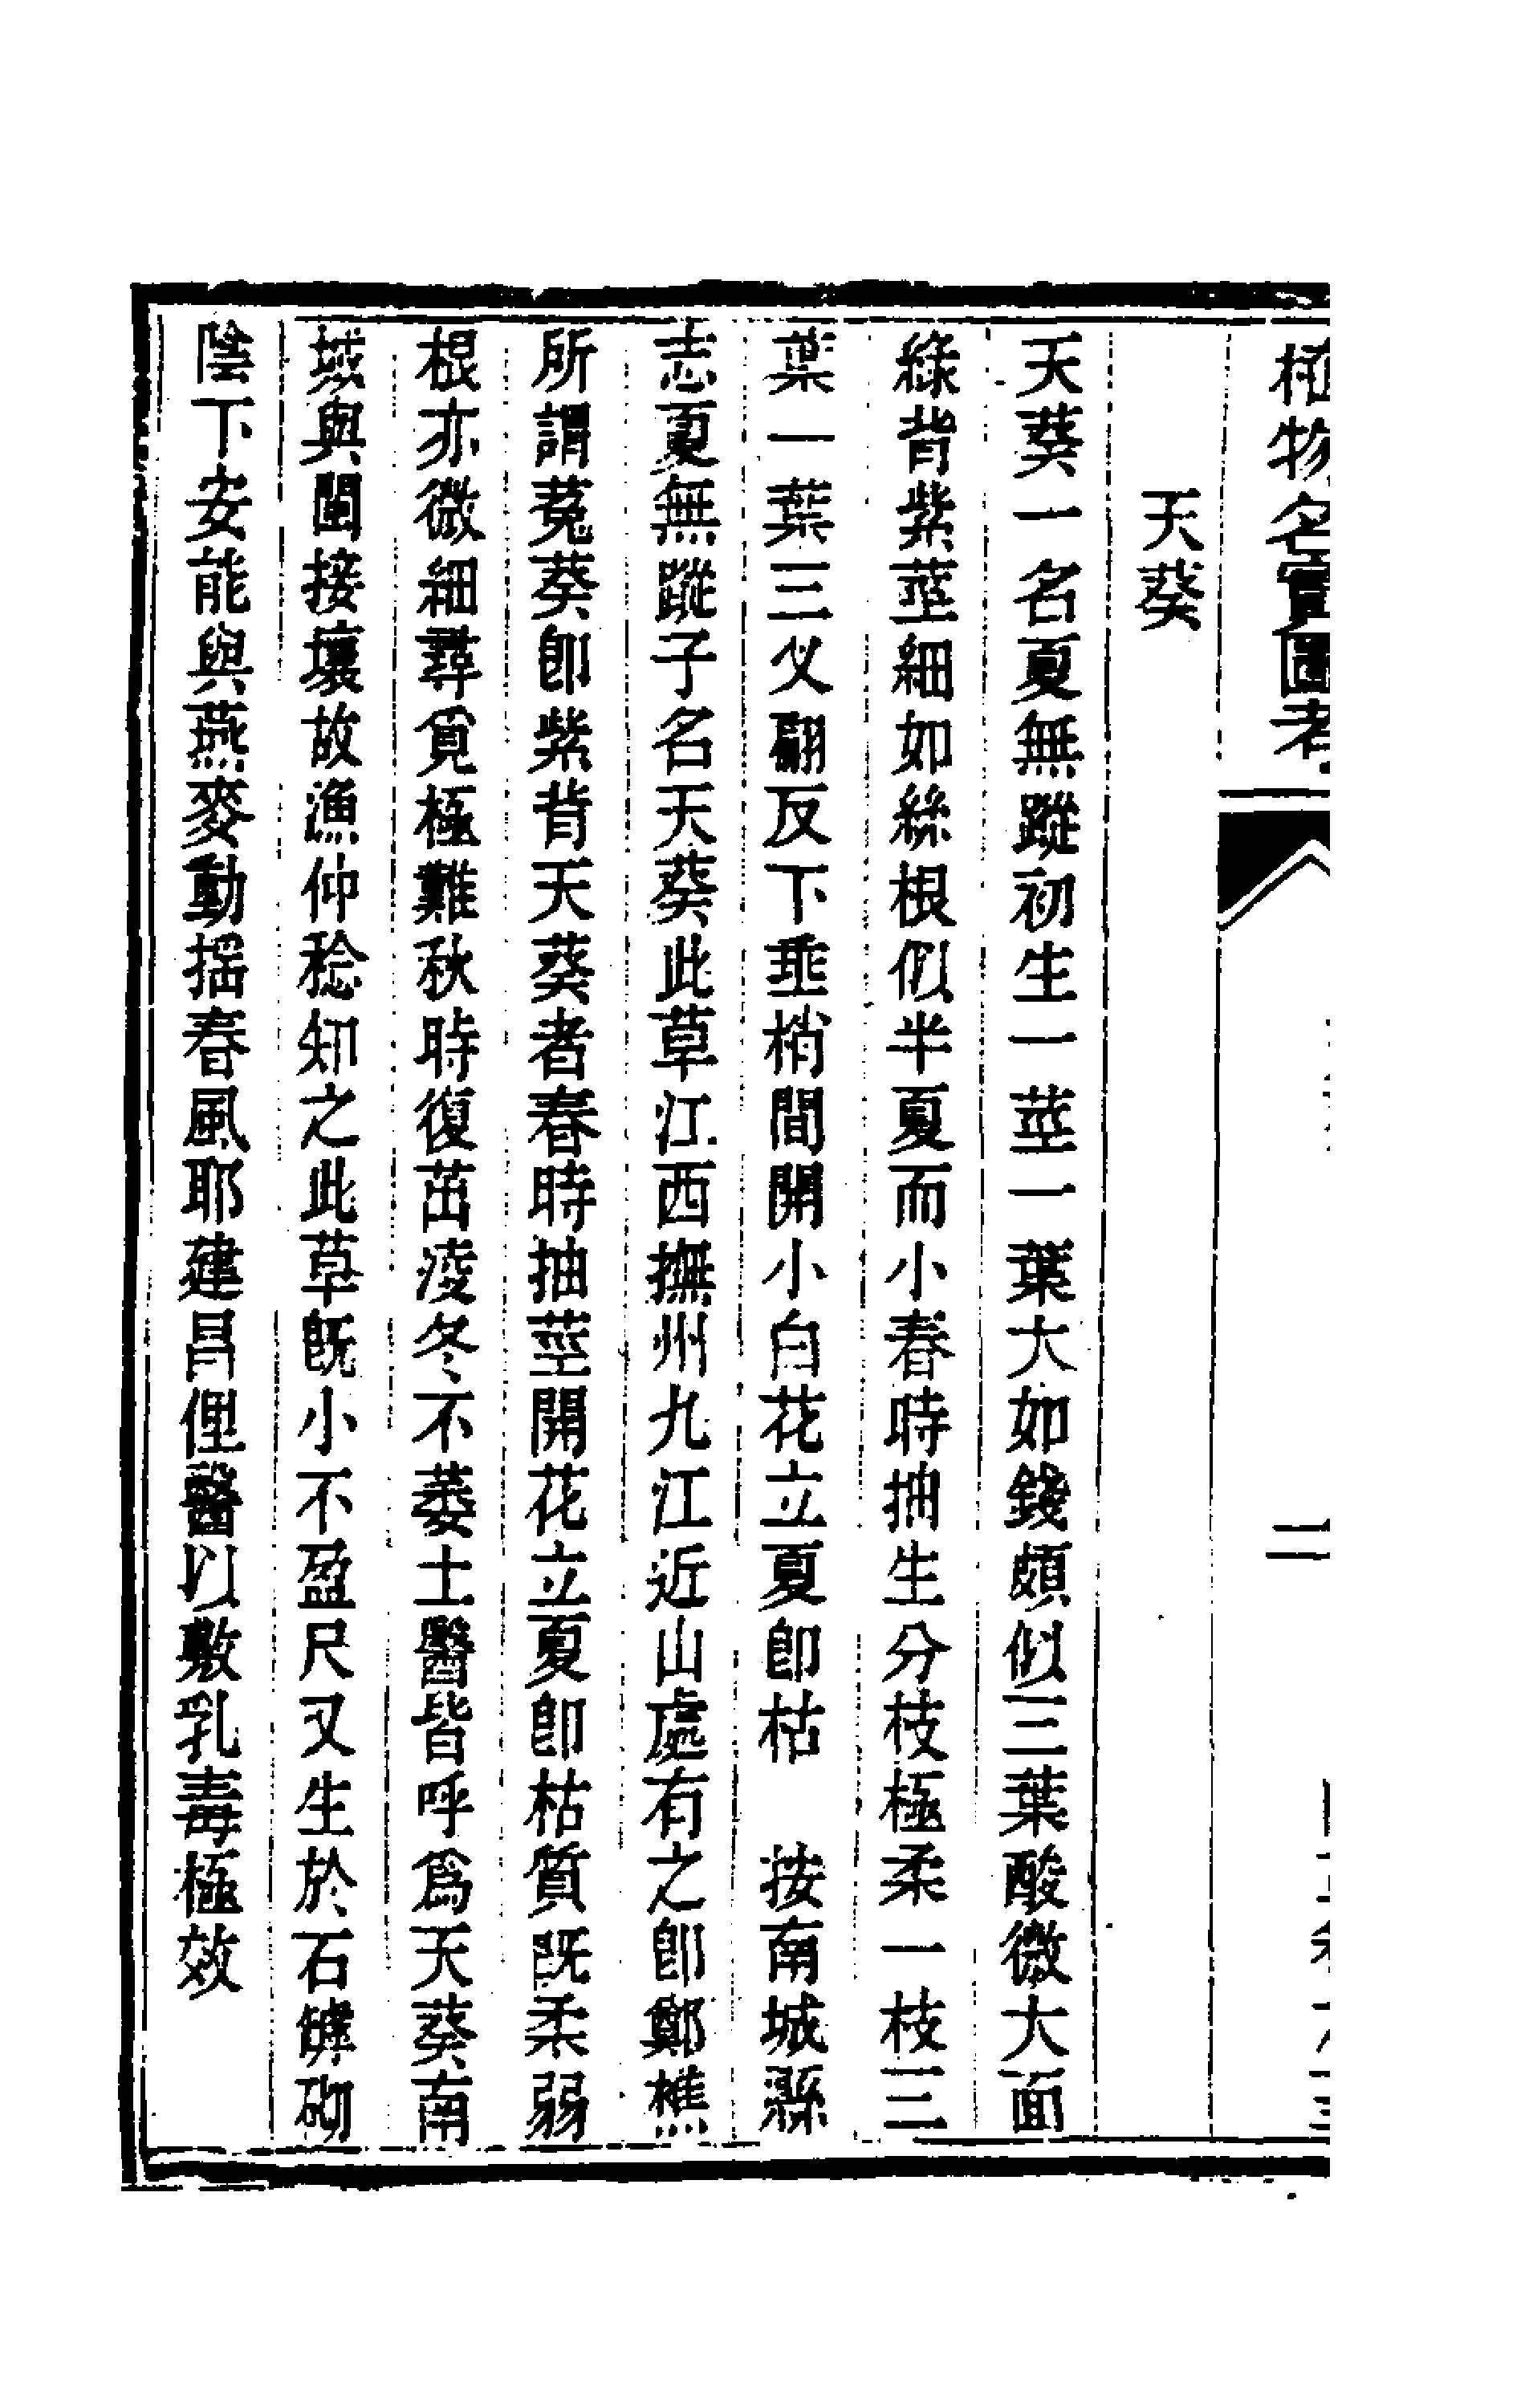 植物名實圖考
二
天葵
天葵一名夏無蹤初生一莖一葉大如錢頗似三葉酸微大面
綠背紫莖細如絲根似半夏而小春時抽生分枝極柔一枝三
葉一葉三乂翩反下垂梢間開小白花立夏卽枯　按南城縣
志夏無蹤子名天葵此草江西撫州九江近山處有之卽鄭樵
所謂菟葵卽紫背天葵者春時抽莖開花立夏卽枯質旣柔弱
根亦微細尋覓極難秋時復茁凌冬不萎土醫皆呼爲天葵南
城與閩接壤故漁仲稔知之此草旣小不盈尺又生於石罅砌
陰下安能與燕麥動搖春風耶建昌俚醫以敷乳毒極效